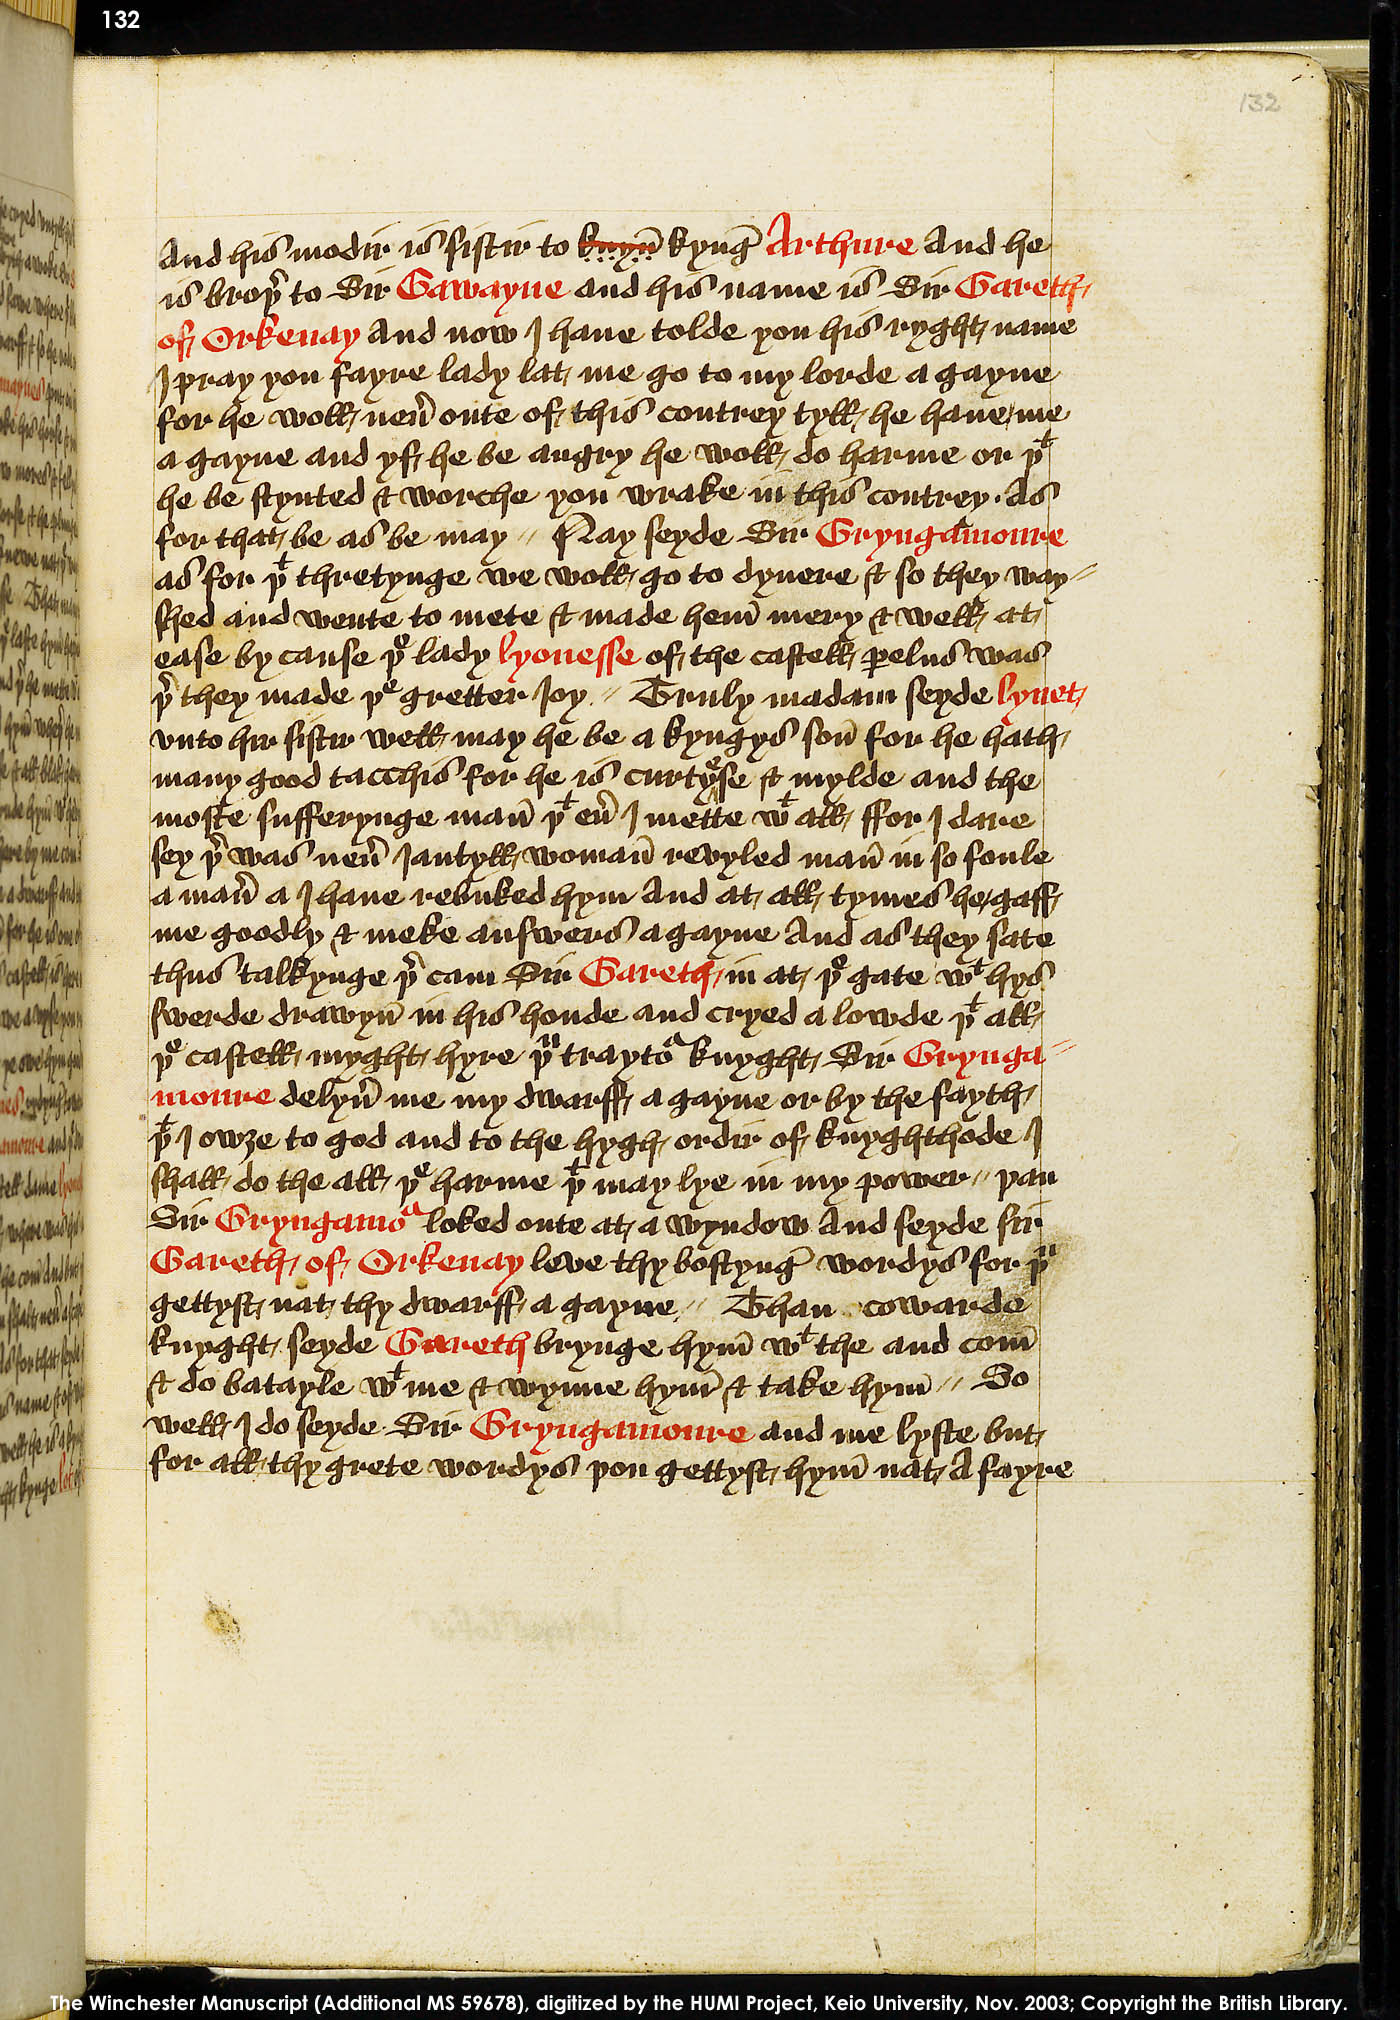 132
132
And his modir is sistir to knyȝ kyng Arthure And he
is broþ̉ to Sir Gawayne and his name is Sir Gareth
of Orkenay And now I haue tolde you his ryght name
I pray you fayre lady lat me go to my lorde a gayne
for he woll neũ oute of this contrey tyll he haue me
a gayne and yf he be angry he woll do harme or þͭ
he be stynted & worche you wrake in this contrey · As
for that be as be may // Nay seyde Sir Gryngamoure
as for þͭ thretynge we woll go to dynere & so they way//
shed and wente to mete & made hem̄ mery & well at
ease by cause þͤ lady lyonesse of the castell ꝑelus was
þ̉ they made þͤ gretter Ioy // Truly madam seyde lynet
vnto hir sistir well may he be a kyngys son̄ for he hath
many good tacchis for he is curtyͤse & mylde and the
moste sufferynge man̄ þͭ eũ I mette wͭ all ffor I dare
sey þ̉ was neũ Iantyll woman̄ revyled man̄ in so foule
a man̉ a I haue rebuked hym And at all tymes he gaff
me goodly & meke answers a gayne And as they sate
thus talkynge þ̉ cam Sir Gareth in at þͤ gate wͭ hys
swerde drawyn̄ in his honde and cryed a lowde þͭ all
þͤ castell myght hyre þͧ traytoͬ knyght Sir Grynga//
moure delyũ me my dwarff a gayne or by the fayth
þͭ I owȝe to god and to the hygh ordir of knyghthode I
shall do the all þͤ harme þͭ may lye in my power // þan
Sir Gryngamoͬ loked oute at a wyndow And seyde sir
Gareth of Orkenay leve thy bostyng wordys for þͧ
gettyst nat thy dwarff a gayne // Than cowarde
knyght seyde Gareth brynge hym̄ wͭ the and com̄
& do batayle wͭ me & wynne hym̄ & take hym̄ // So
well I do seyde Sir Gryngamoure and me lyste but
for all thy grete wordys þou gettyst hym̄ nat A fayre
The Winchester Manuscript (Additional MS 59678), digitized by the HUMI Project, Keio University, Nov. 2003; Copyright the British Library.